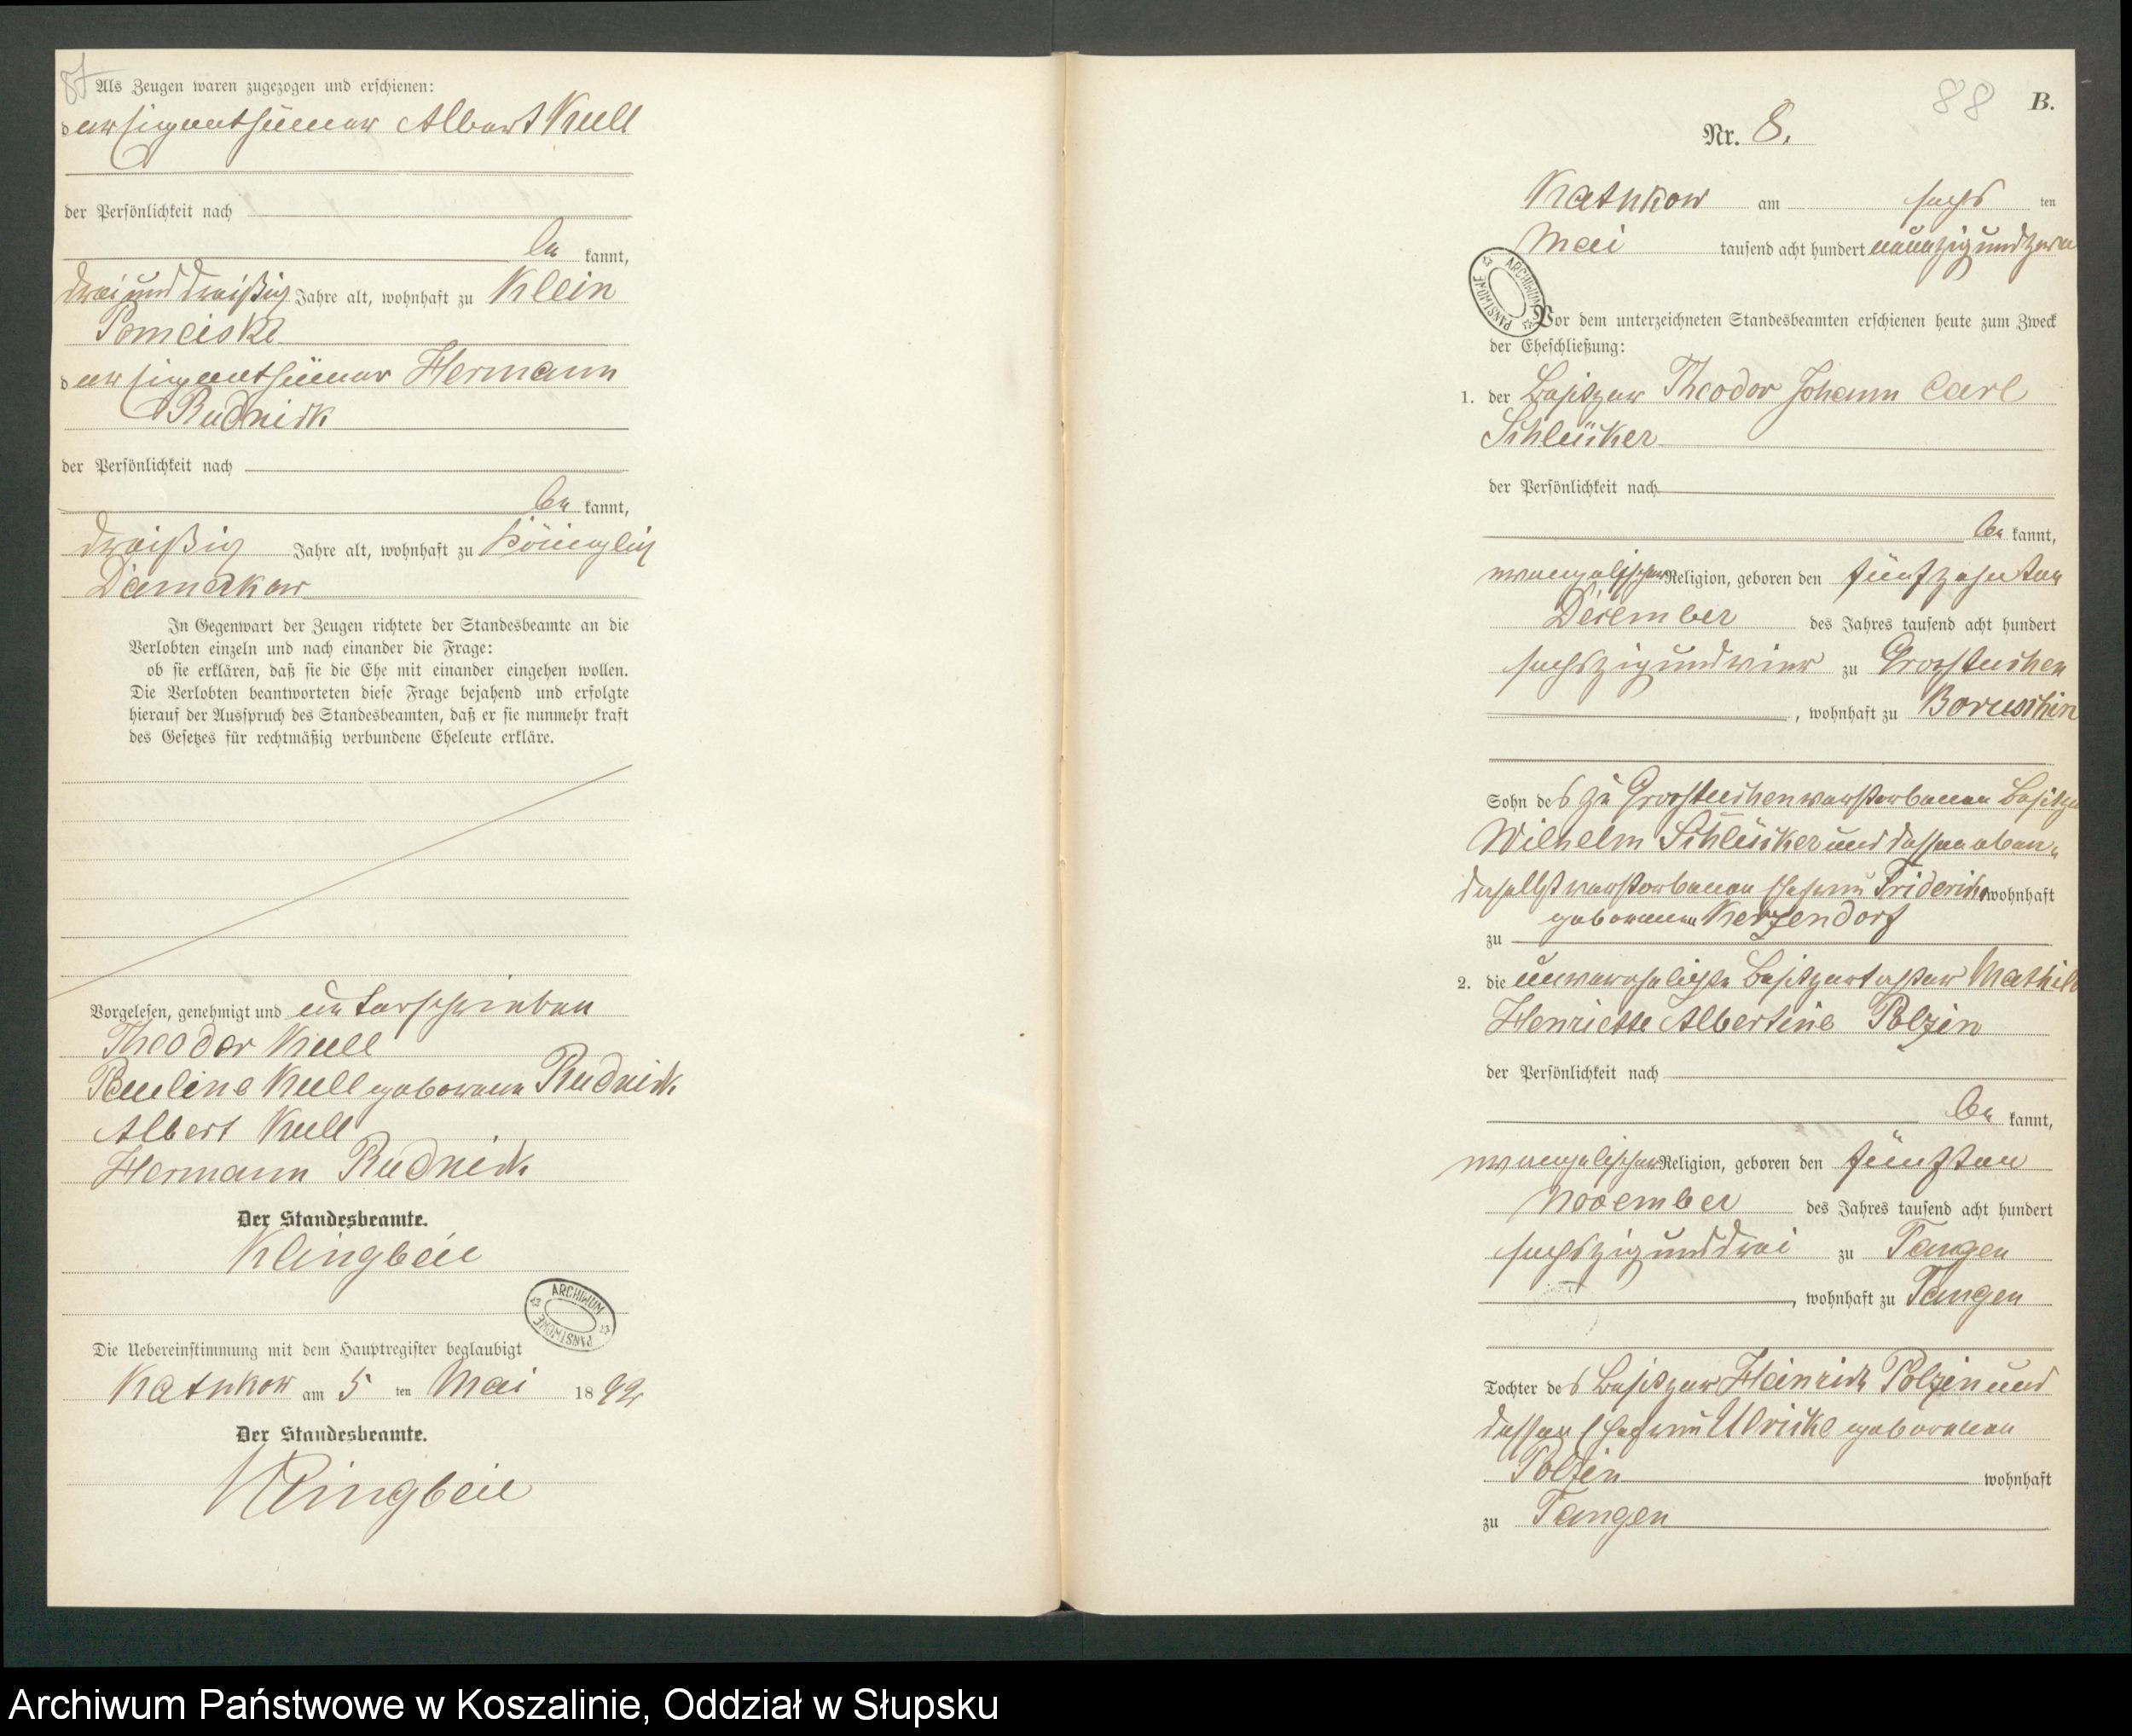 87
Als Zeugen waren zugezogen und erschienen:
der Eigenthümer Albert Kull
der Persönlichkeit nach
be kannt,
drei und dreißig Jahre alt, wohnhaft zu Klein
Pomeiske
der Eigenthümer Hermann
Rudnick
der Persönlichkeit nach
be kannt,
dreißig Jahre alt, wohnhaft zu Königlich
Damerkow
In Gegenwart der Zeugen richtete der Standesbeamte an die
Verlobten einzeln und nach einander die Frage:
ob sie erklären, daß sie die Ehe mit einander eingehen wollen.
Die Verlobten beantworteten diese Frage bejahend und erfolgte
hierauf der Ausspruch des Standesbeamten, daß er sie nunmehr kraft
des Gesetzes für rechtmäßig verbundene Eheleute erkläre.
Vorgelesen, genehmigt und unterschrieben
Theodor Kull
Pauline Kull geborene Rudnick
Albert Kull
Hermann Rudnick
Der Standesbeamte.
Klingbeil
ARCHIWUM PAŃSTWOWE
Die Uebereinstimmung mit dem Hauptregister beglaubigt
Kathkow am 5 ten Mai 1892
Der Standesbeamte.
Klingbeil
88
B.
Nr. 8.
Kathkow am sechs ten
Mai tausend acht hundert neunzig und zwei
ARCHIWUM PAŃSTWOWE
Vor dem unterzeichneten Standesbeamten erschienen heute zum Zweck
der Eheschließung:
1. der Besitzer Theodor Johann Carl
Schlücker
der Persönlichkeit nach
be kannt,
evangelischer Religion, geboren den fünfzehnten
Dezember des Jahres tausend acht hundert
sechszig und vier zu Grosstuchen
, wohnhaft zu Boruschin
Sohn des zu Grosstuchen verstorbenen Besitzers
Wilhelm Schlücker und dessen eben-
daselbst verstorbenen Ehefrau Friderike wohnhaft
geborenen Kerzendorf
zu
2. die unverehelichte Besitzertochter Mathilde
Henriette Albertine Polzin
der Persönlichkeit nach
be kannt,
evangelischer Religion, geboren den fünften
November des Jahres tausend acht hundert
sechszig und drei zu Tangen
, wohnhaft zu Tangen
Tochter des Besitzer Heinrich Polzin und
dessen Ehefrau Ulricke geborenen
Polzin wohnhaft
zu Tangen
Archiwum Państwowe w Koszalinie, Oddział w Słupsku